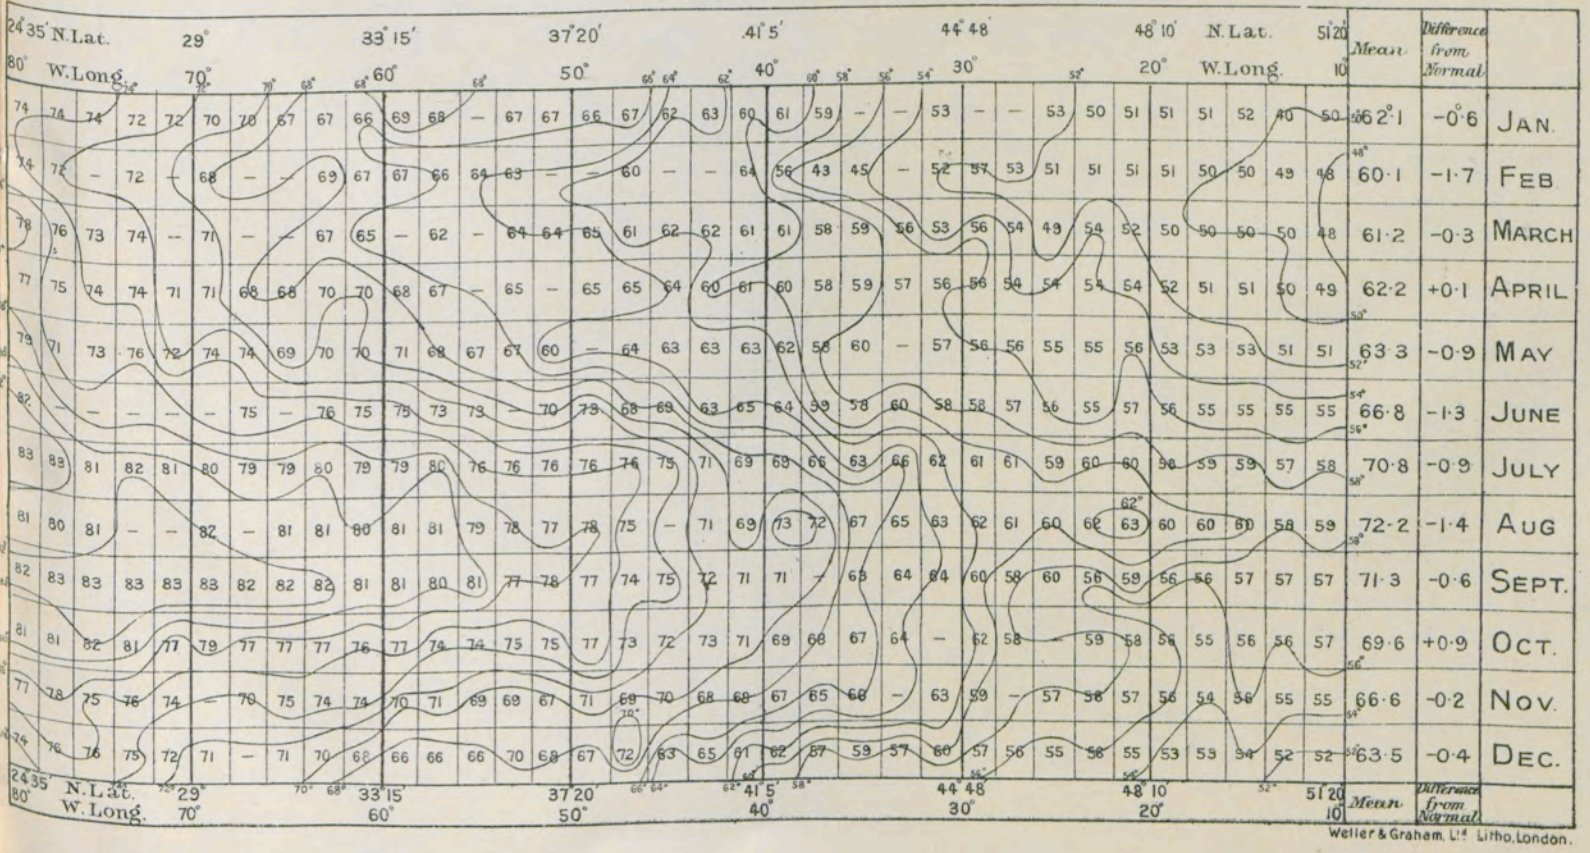 24°35' N.Lat. 29° 33°15' 37°20' 41°5' 44°48' 48°10' N.Lat. 51°20' Mean Difference from Normal
80° W.Long. 70° 60° 50° 40° 30° 20° W.Long. 10°
74° 72° 70° 68° 68° 68° 66° 64° 62° 60° 58° 56° 54° 52°
74 74 74 72 72 70 70 67 67 66 69 68 – 67 67 66 67 62 63 60 61 59 – – 53 – – 53 50 51 51 51 52 40 50 50° 62°·1 –0°·6 JAN.
48°
74 72 – 72 – 68 – – 69 67 67 66 64 63 – – 60 – – 64 56 43 45 – 52 57 53 51 51 51 51 50 50 49 48 60·1 –1·7 FEB.
78 76 73 74 – 71 – – 67 65 – 62 – 64 64 65 61 62 62 61 61 58 59 56 53 56 54 49 54 52 50 50 50 50 48 61·2 –0·3 MARCH
77 75 74 74 71 71 68 68 70 70 68 67 – 65 – 65 65 64 60 61 60 58 59 57 56 56 54 54 54 54 52 51 51 50 49 62·2 +0·1 APRIL
50°
79 71 73 76 72 74 74 69 70 70 71 68 67 67 60 – 64 63 63 63 62 58 60 – 57 56 56 55 55 56 53 53 53 51 51 63·3 –0·9 MAY
52°
54°
82 – – – – – 75 – 76 75 75 73 73 – 70 73 68 69 63 65 64 59 58 60 58 58 57 56 55 57 56 55 55 55 55 66·8 –1·3 JUNE
56°
83 83 81 82 81 80 79 79 80 79 79 80 76 76 76 76 76 75 71 69 69 66 63 66 62 61 61 59 60 60 58 59 59 57 58 70·8 –0·9 JULY
58°
62°
81 80 81 – – 82 – 81 81 80 81 81 79 78 77 78 75 – 71 69 73 72 67 65 63 62 61 60 62 63 60 60 60 58 59 72·2 –1·4 AUG
58°
82 83 83 83 83 83 82 82 82 81 81 80 81 77 78 77 74 75 72 71 71 – 63 64 64 60 58 60 56 59 56 56 57 57 57 71·3 –0·6 SEPT.
81 81 82 81 77 79 77 77 77 76 77 74 74 75 75 77 73 72 73 71 69 68 67 64 – 62 58 – 59 58 56 55 56 56 57 69·6 +0·9 OCT.
56°
77 78 75 76 74 – 70 75 74 74 70 71 69 69 67 71 69 70 68 68 67 65 60 – 63 59 – 57 58 57 56 54 56 55 55 66·6 –0·2 NOV.
70° 54°
74 76 76 75 72 71 – 71 70 68 66 66 66 70 68 67 72 63 65 61 62 57 59 57 60 57 56 55 56 55 53 53 54 52 52 52° 63·5 –0·4 DEC.
72° 70° 68° 66° 64° 62° 60° 58° 56° 54° 52°
24°35' N.Lat. 29° 33°15' 37°20' 41°5' 44°48' 48°10' 51°20' Mean Difference from Normal
80° W.Long. 70° 60° 50° 40° 30° 20° 10°
Weller & Graham, Ltd Litho, London.